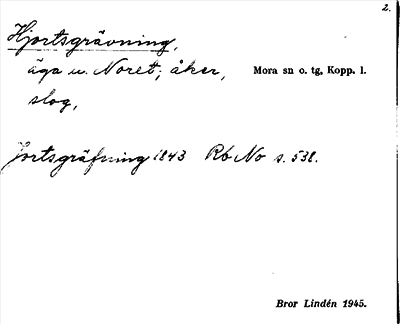 2.
Hjortsgrävning,
äga u. Noret; åker, Mora sn o. tg, Kopp. l.
slog,
Jortsgräfning 1843 Rb No s. 538.
Bror Lindén 1945.